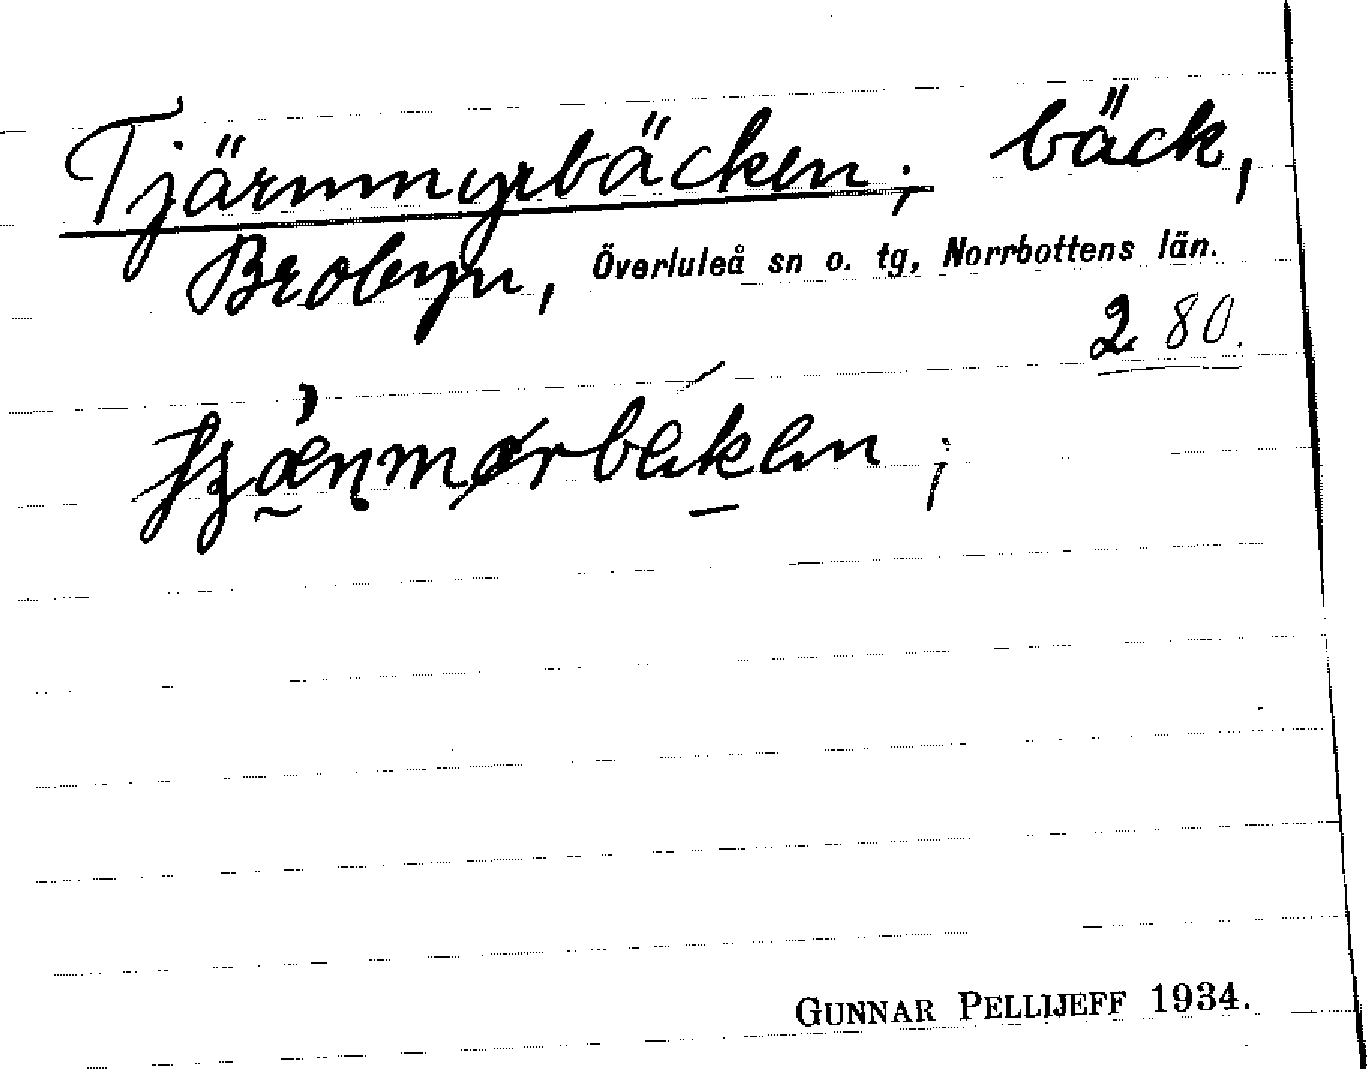 Tjärnmyrbäcken; bäck,
Brobyn, Överluleå sn o. tg, Norrbottens län.
2 80.
GUNNAR PELLIJEFF 1934.